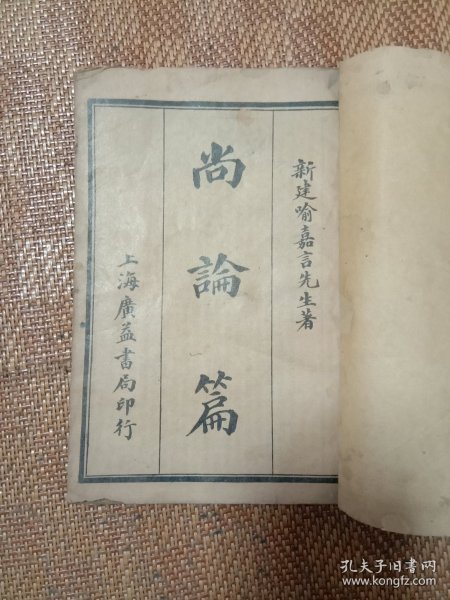 新建喻嘉言先生著
尚論篇
上海廣益書局印行
孔夫子旧书网
www.kongfz.com